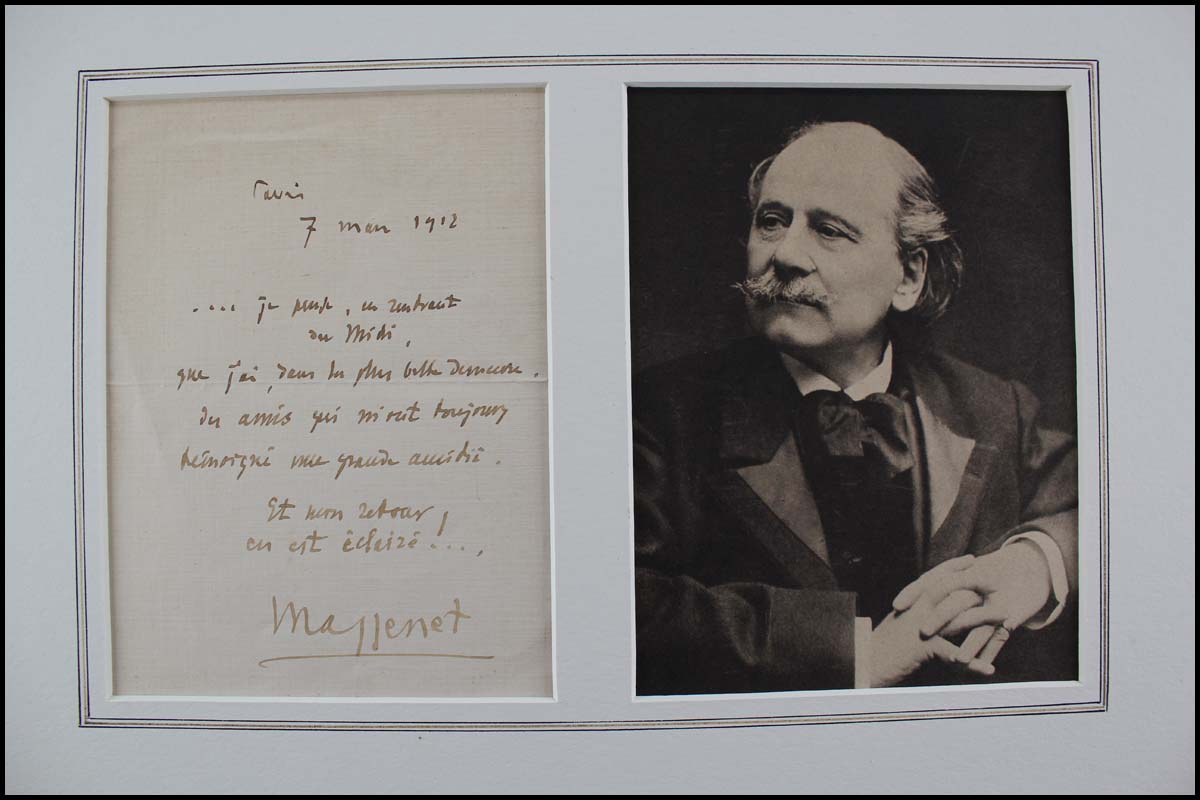 Paris
7 mars 1912
.... je pense, en rentrant
du Midi,
que j'ai, dans la plus belle demeure.
des amis qui m'ont toujours
témoigné une grande amitié.
Et mon retour
en est éclairé!...,
Massenet